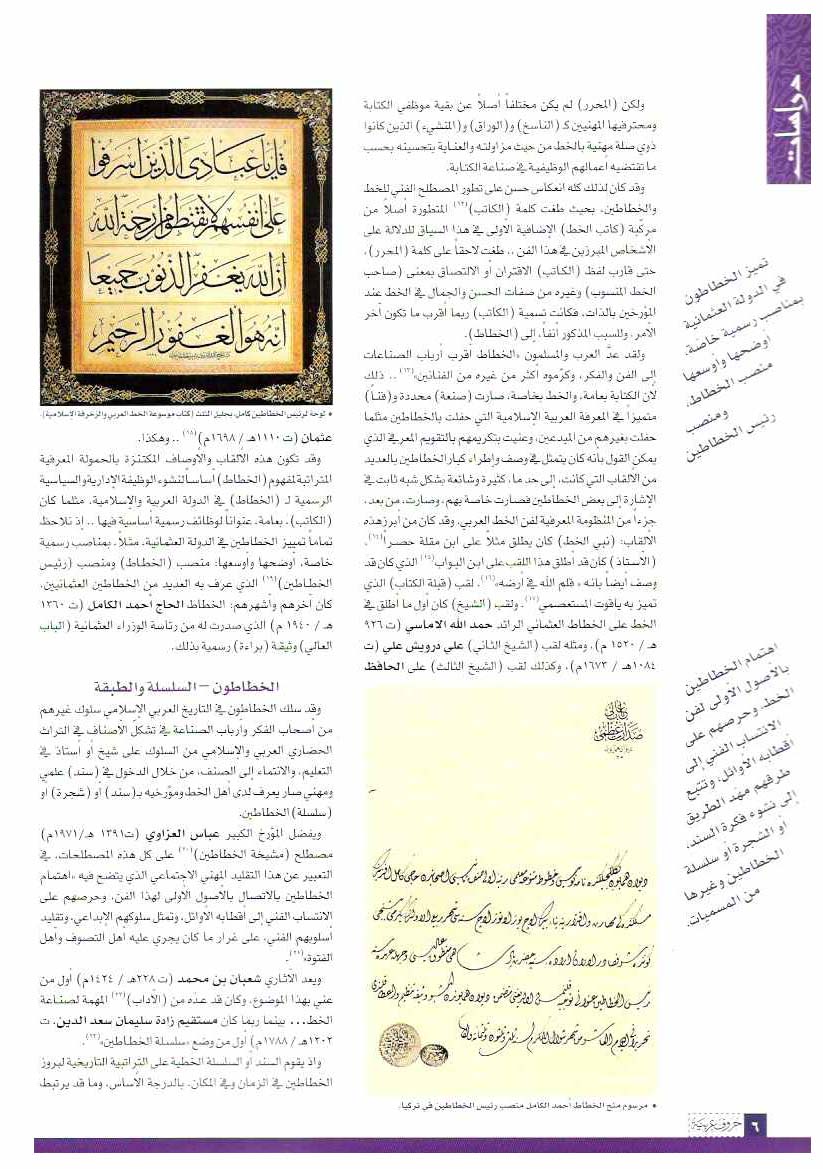 دراسات
ولكن (المحرر) لم يكن مختلفاً أصلاً عن بقية موظفي الكتابة
ومحترفيها المهنيين كـ (الناسخ) و(الوراق) و(المنشيء) الذين كانوا
ذوي صلة مهنية بالخط من حيث مزاولته والعناية بتحسينه بحسب
ما تقتضيه أعمالهم الوظيفية في صناعة الكتابة.
وقد كان لذلك كله انعكاس حسن على تطور المصطلح الفني للخط
والخطاطين، بحيث طغت كلمة (الكاتب)(١٢) المتطورة أصلاً من
مركبة (كاتب الخط) الإضافية الأولى في هذا السياق للدلالة على
الأشخاص المبرزين في هذا الفن .. طغت لاحقاً على كلمة (المحرر)،
حتى قارب لفظ (الكاتب) الاقتران أو الالتصاق بمعنى (صاحب
الخط المنسوب) وغيره من صفات الحسن والجمال في الخط عند
المؤرخين بالذات، فكانت تسمية (الكاتب) ربما أقرب ما تكون آخر
الأمر، وللسبب المذكور آنفاً، إلى (الخطاط).
ولقد عدَّ العرب والمسلمون «الخطاط أقرب أرباب الصناعات
إلى الفن والفكر، وكرّموه أكثر من غيره من الفنانين»(١٣) .. ذلك
لأن الكتابة بعامة، والخط بخاصة، صارت (صنعة) محددة و(فناً)
متميزاً في المعرفة العربية الإسلامية التي حفلت بالخطاطين مثلما
حفلت بغيرهم من المبدعين، وعنيت بتكريمهم بالتقويم المعرفي الذي
يمكن القول بأنه كان يتمثل في وصف وإطراء كبار الخطاطين بالعديد
من الألقاب التي كانت، إلى حد ما، كثيرة وشائعة بشكل شبه ثابت في
الإشارة إلى بعض الخطاطين فصارت خاصة بهم، وصارت، من بعد،
جزءاً من المنظومة المعرفية لفن الخط العربي، وقد كان من أبرز هذه
الألقاب: (نبي الخط) كان يطلق مثلاً على ابن مقلة حصراً(١٤)،
(الأستاذ) كان قد أطلق هذا اللقب على ابن البواب(١٥) الذي كان قد
وصف أيضاً بأنه «قلم الله في أرضه»(١٦)، لقب (قبلة الكتاب) الذي
تميز به ياقوت المستعصمي(١٧)، ولقب (الشيخ) كان أول ما أطلق في
الخط على الخطاط العثماني الرائد حمد الله الأماسي (ت ٩٢٦
هـ / ١٥٢٠ م)، ومثله لقب (الشيخ الثاني) علي درويش علي (ت
١٠٨٤هـ / ١٦٧٣م)، وكذلك لقب (الشيخ الثالث) على الحافظ
• مرسوم منح الخطاط أحمد الكامل منصب رئيس الخطاطين في تركيا.
قل يا عبادي الذين أسرفوا
على أنفسهم لا تقنطوا من رحمة الله
إن الله يغفر الذنوب جميعا
إنه هو الغفور الرحيم
• لوحة لرئيس الخطاطين كامل، بجليل الثلث (كتاب موسوعة الخط العربي والزخرفة الاسلامية).
عثمان (ت ١١١٠هـ / ١٦٩٨م)(١٨) .. وهكذا.
وقد تكون هذه الألقاب والأوصاف المكتنزة بالحمولة المعرفية
المتراتبة لمفهوم (الخطاط) أساساً لنشوء الوظيفة الإدارية والسياسية
الرسمية لـ (الخطاط) في الدولة العربية والإسلامية، مثلما كان
(الكاتب)، بعامة، عنواناً لوظائف رسمية أساسية فيها .. إذ نلاحظ
تماماً تمييز الخطاطين في الدولة العثمانية، مثلاً، بمناصب رسمية
خاصة، أوضحها وأوسعها: منصب (الخطاط) ومنصب (رئيس
الخطاطين)(١٩) الذي عرف به العديد من الخطاطين العثمانيين،
كان آخرهم وأشهرهم: الخطاط الحاج أحمد الكامل (ت ١٣٦٠
هـ / ١٩٤٠ م) الذي صدرت له من رئاسة الوزراء العثمانية (الباب
العالي) وثيقة (براءة) رسمية بذلك.
الخطاطون – السلسلة والطبقة
وقد سلك الخطاطون في التاريخ العربي الإسلامي سلوك غيرهم
من أصحاب الفكر وأرباب الصناعة في تشكل الأصناف في التراث
الحضاري العربي والإسلامي من السلوك على شيخ أو أستاذ في
التعليم، والانتماء إلى الصنف، من خلال الدخول في (سند) علمي
ومهني صار يعرف لدى أهل الخط ومؤرخيه بـ(سند) أو (شجرة) أو
(سلسلة) الخطاطين.
ويفضل المؤرخ الكبير عباس العزاوي (ت١٣٩١ هـ/١٩٧١م)
مصطلح (مشيخة الخطاطين)(٢٠) على كل هذه المصطلحات، في
التعبير عن هذا التقليد المهني الاجتماعي الذي يتضح فيه «اهتمام
الخطاطين بالاتصال بالأصول الأولى لهذا الفن، وحرصهم على
الانتساب الفني إلى أقطابه الأوائل، وتمثل سلوكهم الإبداعي، وتقليد
أسلوبهم الفني، على غرار ما كان يجري عليه أهل التصوف وأهل
الفتوة»(٢١).
ويعد الآثاري شعبان بن محمد (ت ٢٢٨هـ / ١٤٢٤م) أول من
عني بهذا الموضوع، وكان قد عده من (الآداب)(٢٢) المهمة لصناعة
الخط... بينما ربما كان مستقيم زادة سليمان سعد الدين، ت
١٢٠٢هـ / ١٧٨٨ م) أول من وضع «سلسلة الخطاطين»(٢٣).
وإذ يقوم السند أو السلسلة الخطية على التراتبية التاريخية لبروز
الخطاطين في الزمان وفي المكان، بالدرجة الأساس، وما قد يرتبط
تميز الخطاطون
في الدولة العثمانية
بمناصب رسمية خاصة،
أوضحها وأوسعها
منصب الخطاط،
ومنصب
رئيس الخطاطين
اهتمام الخطاطين
بالأصول الأولى لفن
الخط، وحرصهم على
الانتساب الفني إلى
أقطابه الأوائل، وتتبع
طرقهم مهّد الطريق
إلى نشوء فكرة السند،
أو الشجرة أو سلسلة
الخطاطين وغيرها
من المسميات.
٦ حروف عربية